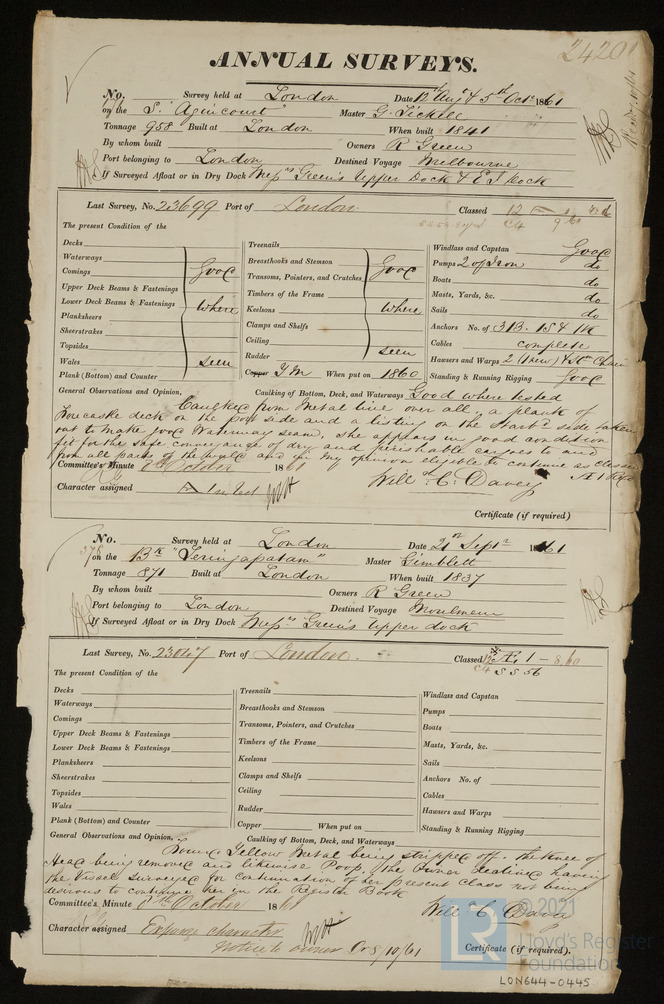 24201
ANNUAL SURVEYS.
No. Survey held at London Date 12th Augt & 5th Octr 1861
on the S. "Agincourt" Master G. Tickell
Tonnage 958 Built at London When built 1841
By whom built Owners R Green
Port belonging to London Destined Voyage Melbourne
If Surveyed Afloat or in Dry Dock Messrs Green's Upper Dock & E I Dock
Last Survey, No. 23699 Port of London Classed 12
The present Condition of the
Decks
Waterways
Comings
Upper Deck Beams & Fastenings
Lower Deck Beams & Fastenings
Planksheers
Sheerstrakes
Topsides
Wales
Plank (Bottom) and Counter
Good where seen
Treenails
Breasthooks and Stemson
Transoms, Pointers, and Crutches
Timbers of the Frame
Keelsons
Clamps and Shelfs
Ceiling
Rudder
Good where seen
Copper Y M When put on 1860
Windlass and Capstan Good
Pumps 2 of Iron do
Boats do
Masts, Yards, &c. do
Sails do
Anchors No. of 3 B. 1 S & 1 K
Cables complete
Hawsers and Warps 2 (1 new)
Standing & Running Rigging Good
General Observations and Opinion, Caulking of Bottom, Deck, and Waterways Good where tested
Caulked from Metal line over all, a plank of
Forecastle deck on the port side and a listing on the Starbd side taken
out to make good Waterway seam, She appears in good condition
fit for the safe conveyance of dry and perishable cargoes to and
from all parts of the world and in my opinion eligible to continue as classed
Committee's Minute 8th October 1861
Will C. Davey
Character assigned
Certificate (if required)
No. Survey held at London Date 21st Septr 1861
on the Bk "Seringapatam" Master Gimblett
Tonnage 871 Built at London When built 1837
By whom built Owners R Green
Port belonging to London Destined Voyage Moulmein
If Surveyed Afloat or in Dry Dock Messrs Green's Upper dock
Last Survey, No. 23047 Port of London Classed Æ 1 - 8, 60
S S 56
The present Condition of the
Decks
Waterways
Comings
Upper Deck Beams & Fastenings
Lower Deck Beams & Fastenings
Planksheers
Sheerstrakes
Topsides
Wales
Plank (Bottom) and Counter
Treenails
Breasthooks and Stemson
Transoms, Pointers, and Crutches
Timbers of the Frame
Keelsons
Clamps and Shelfs
Ceiling
Rudder
Copper When put on
Windlass and Capstan
Pumps
Boats
Masts, Yards, &c.
Sails
Anchors No. of
Cables
Hawsers and Warps
Standing & Running Rigging
General Observations and Opinion, Caulking of Bottom, Deck, and Waterways
Found Yellow Metal being stripped off the knee of
Head being removed and likewise Poop, the Owner declines having
the Vessel Surveyed for continuation of her present class not being
desirous to continue her in the Register Book
Committee's Minute 8th October 1861
Will C Davey
Character assigned Expunge character
notice to owner 8/10/61
Certificate (if required).
LR © 2021
Lloyd's Register
Foundation
LON644-0445